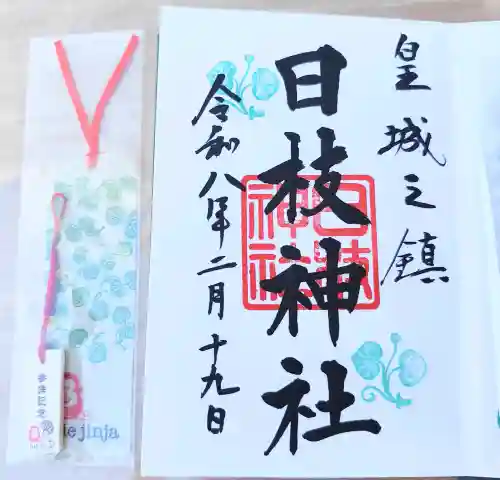 皇城之鎮
日枝神社
日枝神社
令和八年二月十九日
参拝記念
ie jinja